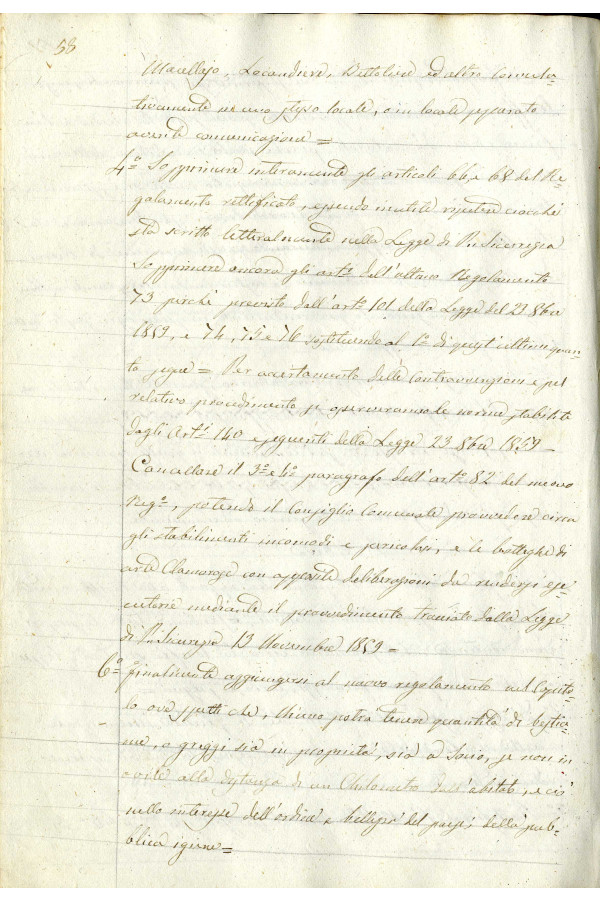 58
Macellajo, Locandiere, Bettoliere ed altro consecu-
tivamente in uno stesso locale, o in locali separati
aventi comunicazione =
4º Sopprimere interamente gli articoli 66, e 68 del Re-
golamento rettificato, essendo inutile ripetere ciocchè
sta scritto letteralmente nella Legge di P. Sicurezza
Sopprimere ancora gli artⁱ dell'ultimo Regolamento
73 perchè previsto dall'artº 101 della Legge del 23 8bre
1859, e 74, 75 e 76 sostituendo al 1º di quest'ultimi quan-
to segue = Per accertamento delle Contravvenzioni e pel
relativo procedimento si osserveranno le norme stabilite
dagli Artⁱ 140 e seguenti della Legge 23 8bre 1859 -
Cancellare il 3º e 4º paragrafo dell'artº 82 del nuovo
Regº, potendo il Consiglio Comunale provvedere circa
gli stabilimenti incomodi e pericolosi, e le botteghe di
arte Clamorose con apposite deliberazioni da rendersi ese-
cutorie mediante il provvedimento tracciato dalla Legge
di P. Sicurezza 13 Novembre 1859 =
6º Finalmente aggiungersi al nuovo regolamento nel Capito-
lo ove spetti che, niuno potrà tenere quantità di bestia-
me, o greggi sia in proprietà, sia a Socio, se non in
ovile alla distanza di un Chilometro dall'abitato, e ciò
nello interesse dell'ordine, e bellezza del paese, della pub-
blica igiene =